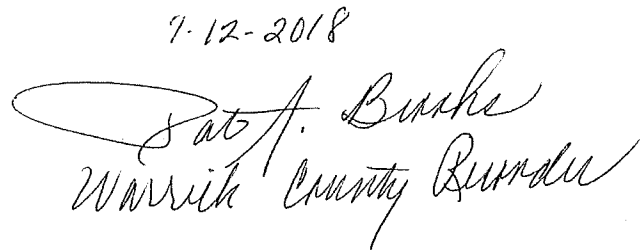 7-12-2018
Pat A. Brooks
Warrick County Recorder